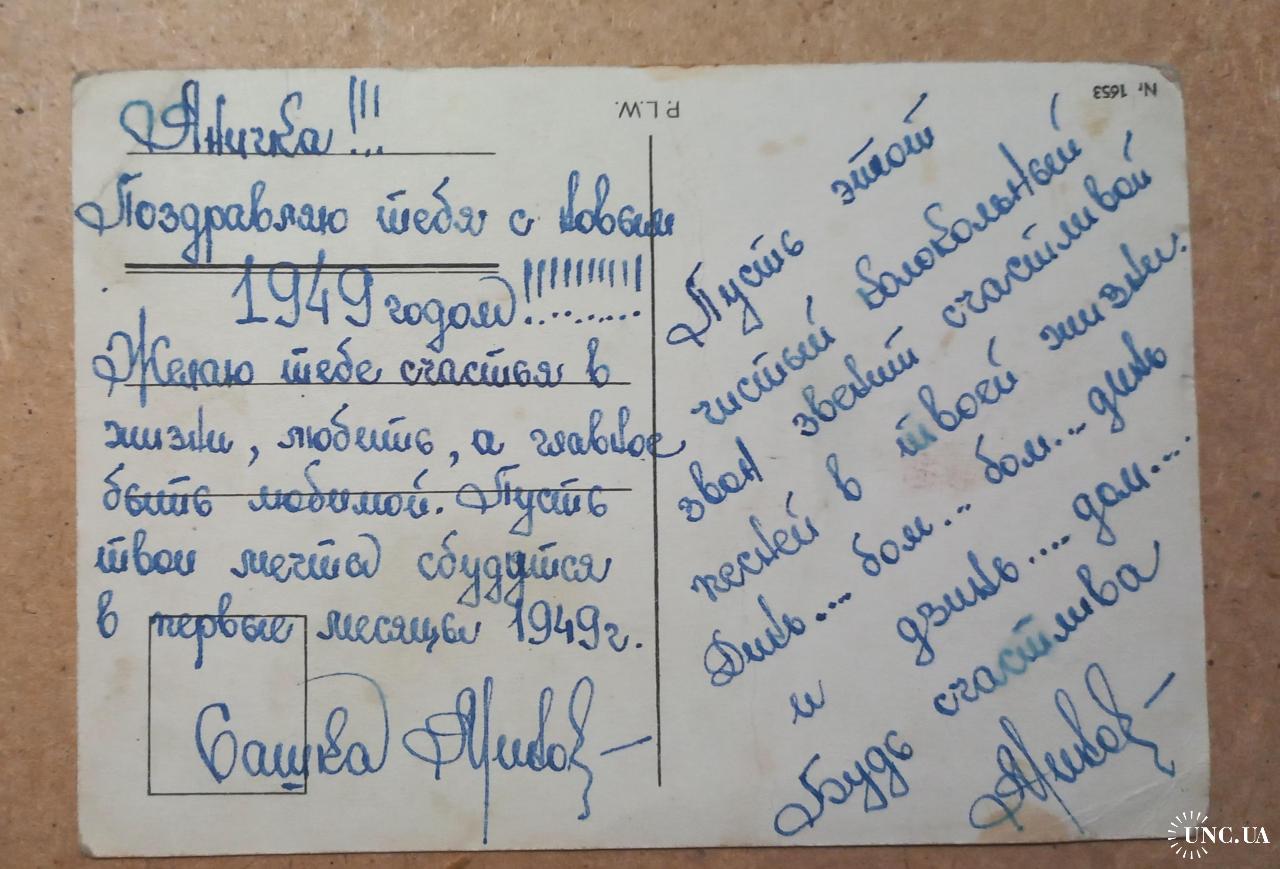 Яничка!!!
Поздравляю тебя с новым
1949 годом!!!!!!!!!!
Желаю тебе счастья в
жизни, любить, а главное
быть любимой. Пусть
твои мечты сбудутся
в первые месяцы 1949г.
Сашка
P.L.W.
Nr 1653
Пусть этот
чистый колокольный
звон звенит счастливой
песней в твоей жизни.
Динь... бом... бом... динь
и дзинь.... дом...
Будь счастлива
UNC.UA